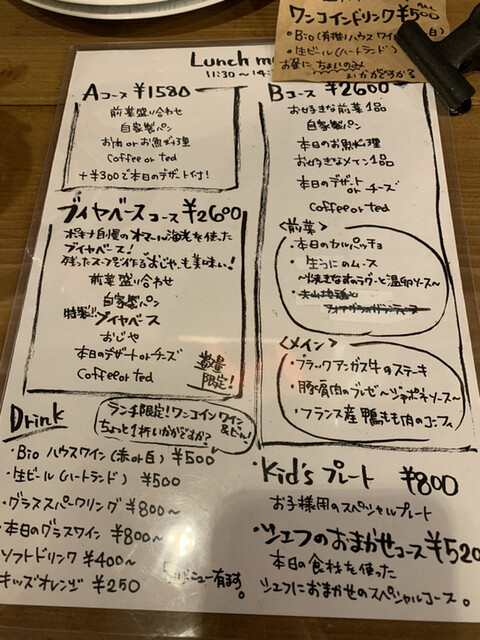 ワンコインドリンク ¥500
・Bio(有機)ハウスワイン
・生ビール(ハートランド)
お昼に ちょい飲み
いかがですか？
Lunch m
11:30～14:
Aコース ¥1580
前菜盛り合わせ
自家製パン
お肉 or お魚料理
Coffee or tea
+¥300で本日のデザート付！
Bコース ¥2600
お好きな前菜1品
自家製パン
本日のお魚料理
お好きなメイン1品
本日のデザート or チーズ
Coffee or tea
<前菜>
・本日のカルパッチョ
・生うにのムース
～焼きなすのラグーと温卵ソース～
<メイン>
・ブラックアンガス牛のステーキ
・豚肩肉のブレゼ～シャポネソース～
・フランス産鴨もも肉のコンフィ
ブイヤベースコース ¥2600
ボキナ自慢のオマール海老を使った
ブイヤベース！
残ったスープで作るおじやも美味い！
前菜盛り合わせ
自家製パン
特製!! ブイヤベース
おじや
本日のデザート or チーズ
Coffee or tea
数量限定！
Drink
ランチ限定！ワンコインワイン&ビール！
ちょっと1杯いかがですか？
・Bio ハウスワイン (赤or白) ¥500
・生ビール (ハートランド) ¥500
・グラススパークリング ¥800～
・本日のグラスワイン ¥800～
ソフトドリンク ¥400～
キッズオレンジ ¥250
メニュー有ます。
・Kid's プレート ¥800
お子様用のスペシャルプレート
・シェフのおまかせコース ¥520
本日の食材を使った
シェフにおまかせのスペシャルコース。